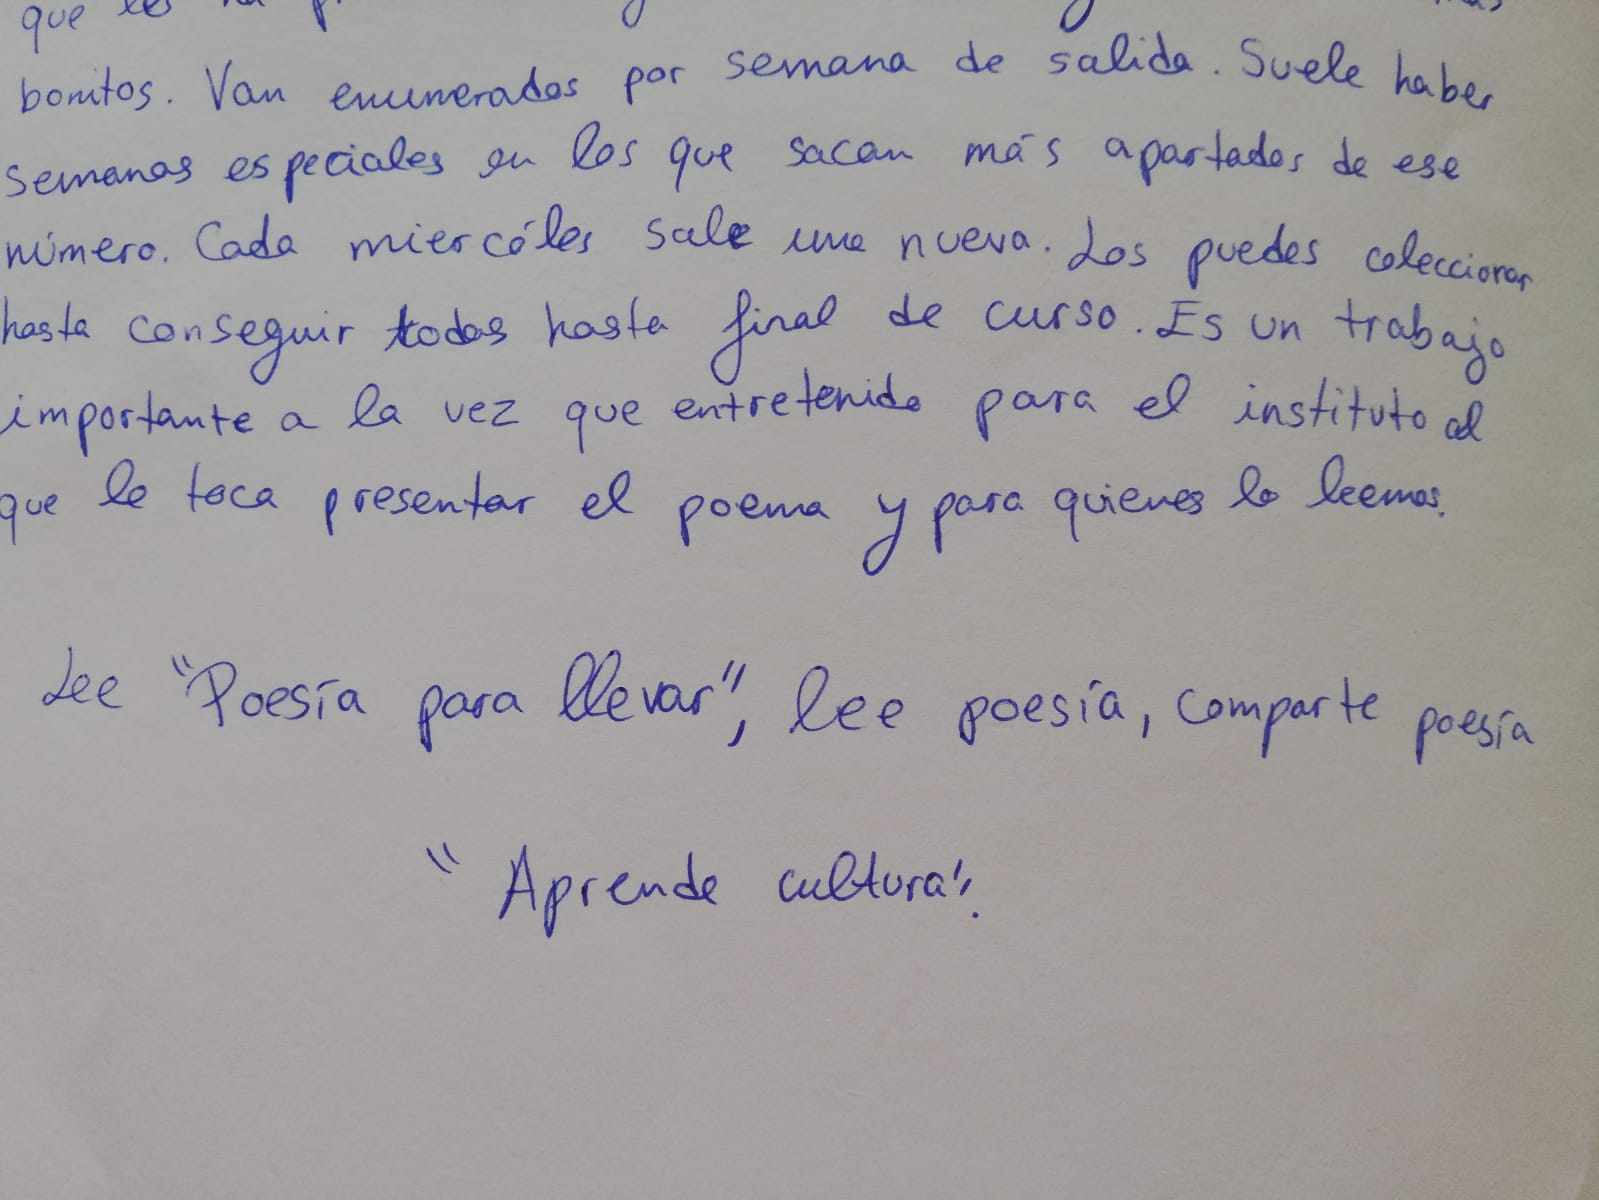 que
bonitos. Van enumerados por semana de salida. Suele haber
semanas especiales en los que sacan más apartados de ese
número. Cada miercóles sale una nueva. Los puedes coleccionar
hasta conseguir todos hasta final de curso. Es un trabajo
importante a la vez que entretenido para el instituto al
que le toca presentar el poema y para quienes lo leemos.
Lee "Poesía para llevar", lee poesía, comparte poesía
"Aprende cultura".